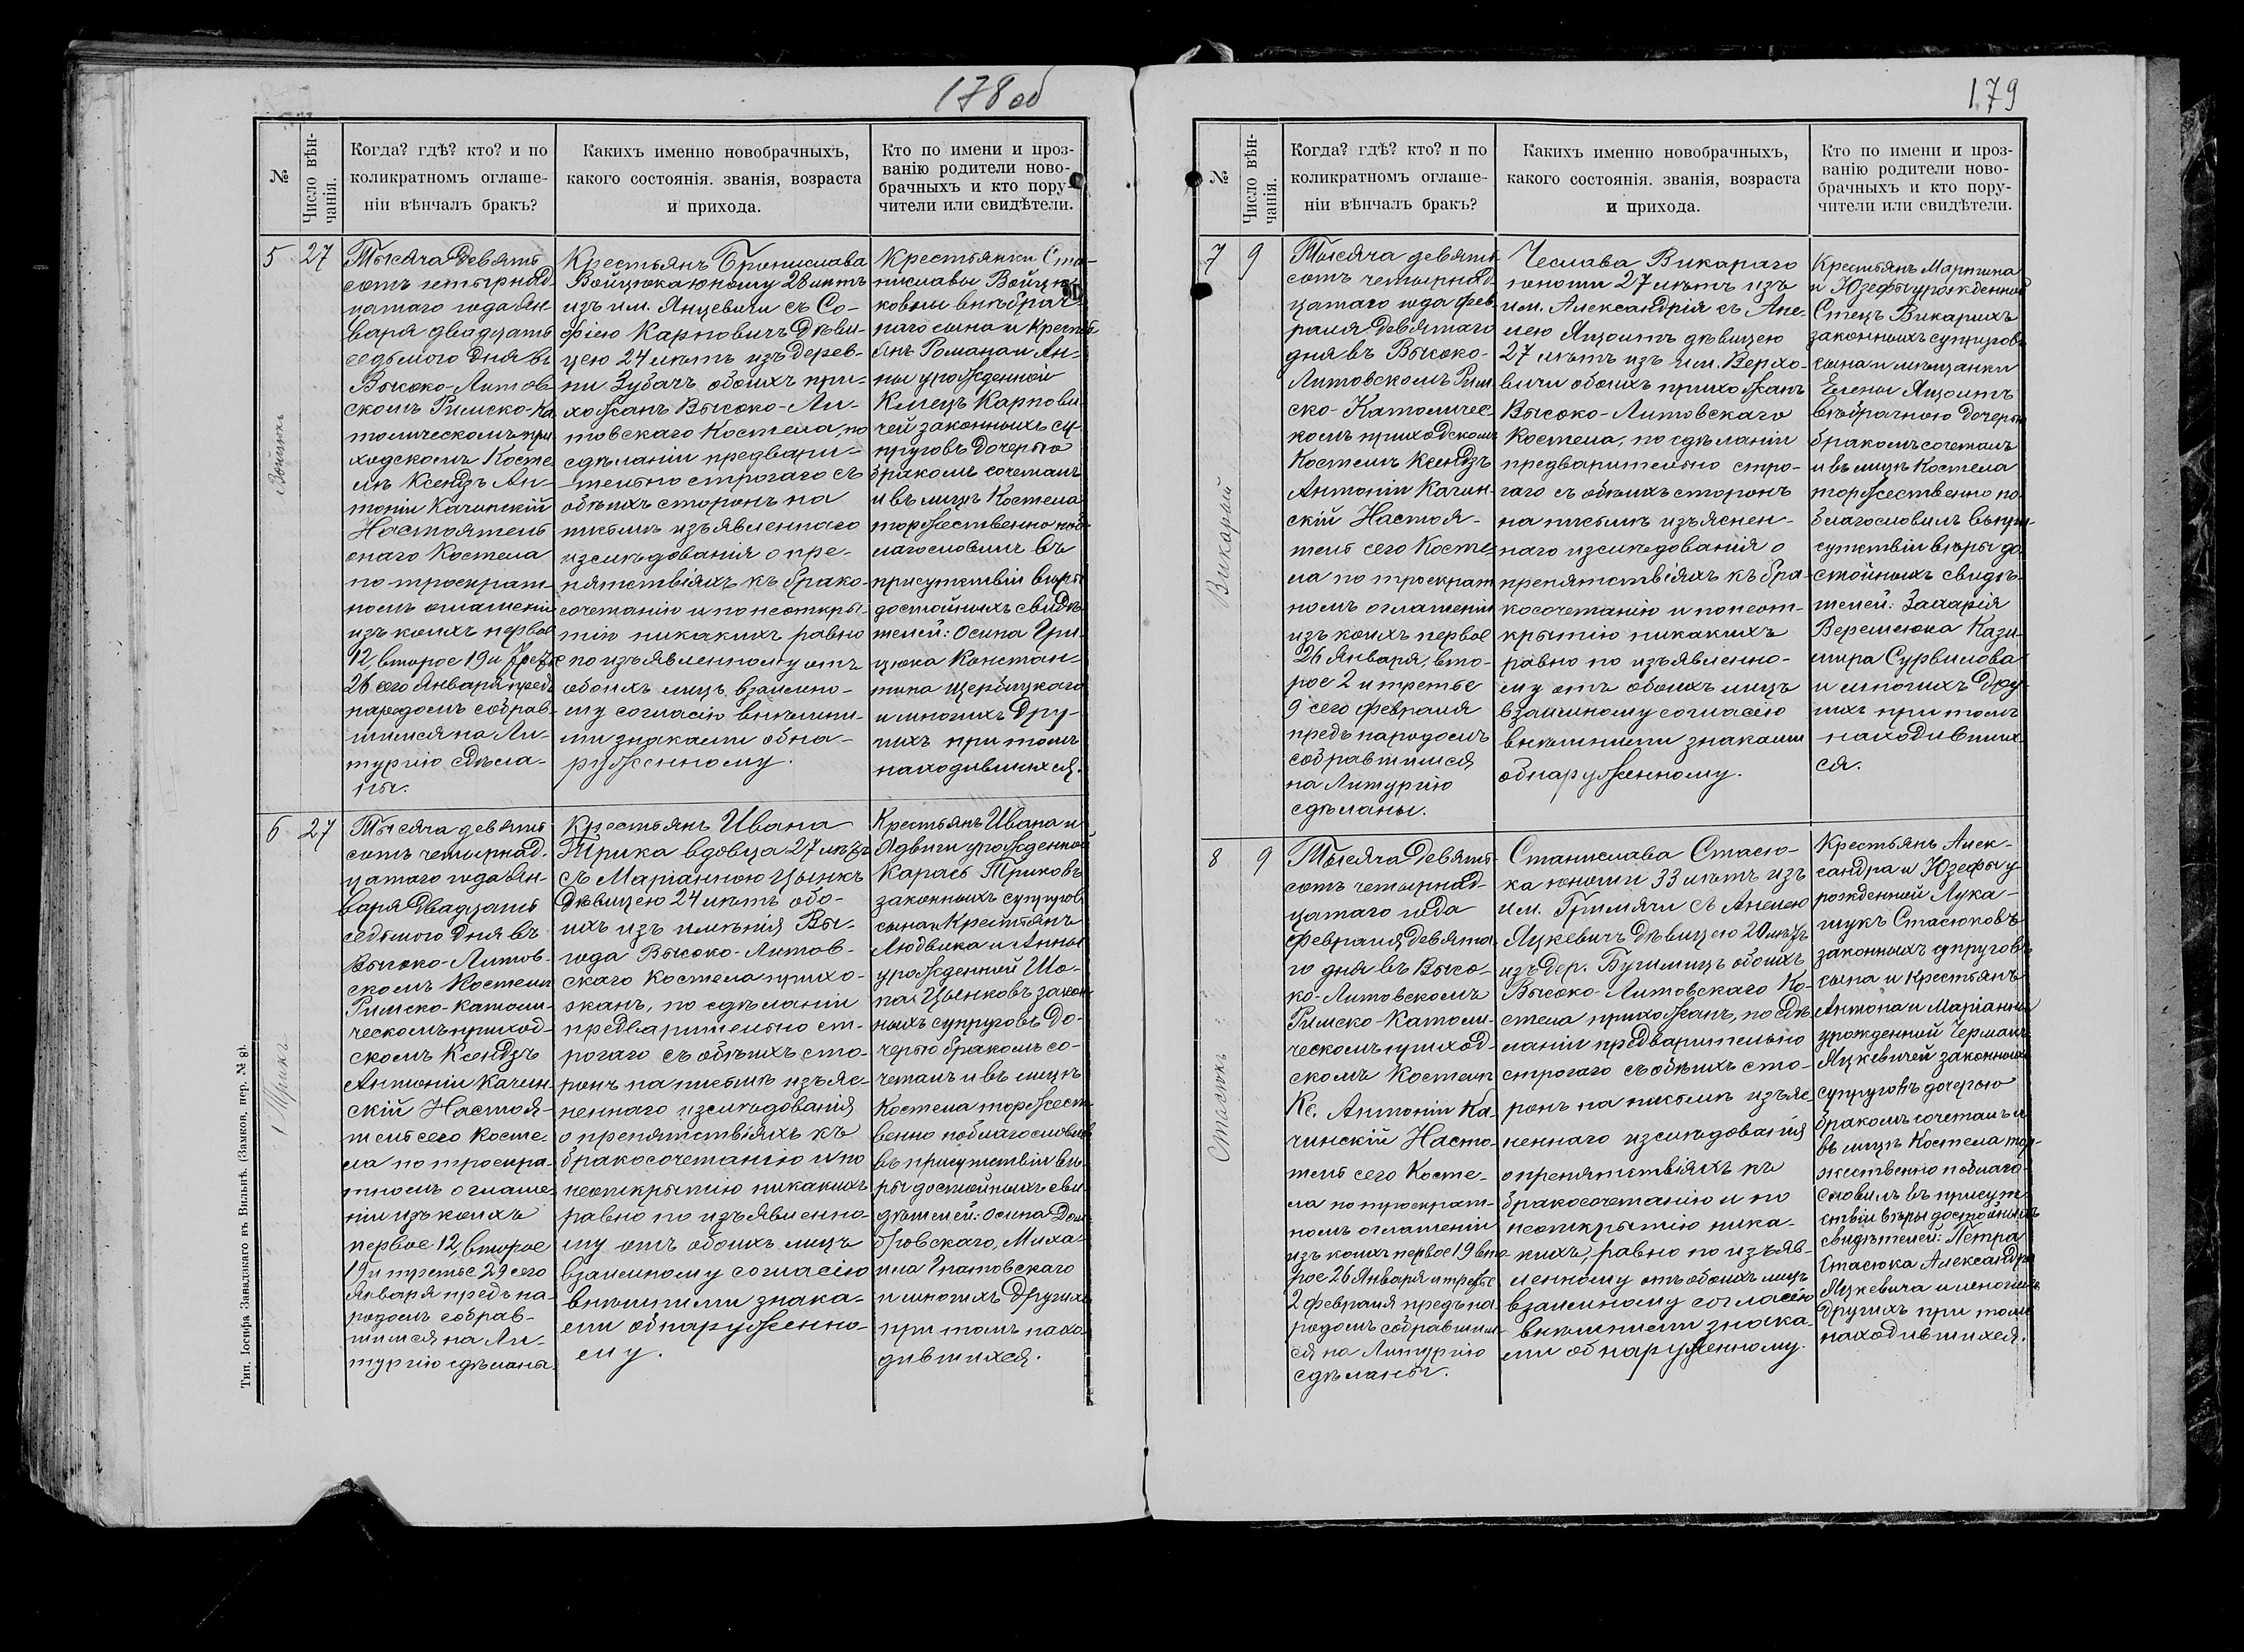 178 об
№
Число вѣн-
чанія.
Когда? гдѣ? кто? и по
коликратномъ оглаше-
ніи вѣнчалъ бракъ?
Какихъ именно новобрачныхъ,
какого состоянія. званія, возраста
и прихода.
Кто по имени и проз-
ванію родители ново-
брачныхъ и кто пору-
чители или свидѣтели.
5
27
Войцюкъ
Тысяча девятьсотъ
сотъ четырнад-
цатаго года Ян-
варя двадцать
седьмого дня въ
Высоко-Литов-
скомъ Римско-Ка
толическомъ при
ходскомъ Косте
лѣ Ксендзъ Ан-
тоній Качинскій
Настоятель
онаго Костела
по троекрат-
номъ оглашеніи
изъ коихъ первое
12, второе 19 и третье
26 сего Января предъ
народомъ собрав-
шимся на Ли-
тургію сдѣла-
ны.
Крестьянъ Бронислава
Войцюка юношу 28 лѣтъ
изъ им. Янцевичи съ Со-
фіею Карповичъ дѣви-
цею 24 лѣтъ изъ дерев-
ни Зубачъ обоихъ при-
хожанъ Высоко-Ли-
товскаго Костела, по
сдѣланіи предвари-
тельно строгаго съ
обѣихъ сторонъ на
письмѣ изъявленнаго
изслѣдованія о пре-
пятствіяхъ къ брако-
сочетанію и по неоткры-
тію никакихъ равно
по изъявленному отъ
обоихъ лицъ взаимно-
му согласію внѣшни-
ми знаками обна-
руженному.
Крестьянки Ста-
ниславы Войцю-
ковны внѣбрач-
наго сына и Кресть
янъ Романа и Ан-
ны урожденной
Клецъ Карпови-
чей законныхъ су-
пруговъ дочерью
бракомъ сочеталъ
и въ лицѣ Костела
торжественно поб-
лагословилъ въ
присутствіи вѣры
достойныхъ свидѣ-
телей: Осипа Гри-
цюка Констан-
тина Щербицкаго
и многихъ дру-
гихъ при томъ
находившихся.
6
27
Трикъ
Тысяча девять
сотъ четырнад-
цатаго года Ян-
варя двадцать
седьмого дня въ
Высоко-Литов-
скомъ Костелѣ
Римско-Католи-
ческомъ приход-
скомъ Ксендзъ
Антоній Качин-
скій Настоя-
тель сего Косте-
ла по троекра-
тномъ оглаше-
ніи изъ коихъ
первое 12, второе
19 и третье 29 сего
Января предъ на-
родомъ собрав-
шимся на Ли-
тургію сдѣланы
Крестьянъ Ивана
Трика вдовца 27 лѣтъ
съ Маріанною Цынкъ
дѣвицею 24 лѣтъ обо-
ихъ изъ имѣнія Вы-
года Высоко-Литов-
скаго Костела прихо-
жанъ, по сдѣланіи
предварительно ст-
рогаго съ обѣихъ сто-
ронъ на письмѣ изъяс-
неннаго изслѣдованія
о препятствіяхъ къ
бракосочетанію и по
неоткрытію никакихъ
равно по изъявленно-
му отъ обоихъ лицъ
взаимному согласію
внѣшними знака-
ми обнаруженно-
му.
Крестьянъ Ивана и
Ядвиги урожденной
Карась Триковъ
законныхъ супругов
сына и Крестьянъ
Людвика и Анны
урожденной Шо-
па Цынковъ закон
ныхъ супруговъ до-
черью бракомъ со-
четалъ и въ лицѣ
Костела торжест-
венно поблагословилъ
въ присутствіи вѣ-
ры достойныхъ сви-
дѣтелей: Осипа Дом-
бровскаго, Миха-
ила Гнатовскаго
и многихъ другихъ
при томъ нахо-
дившихся.
Тип. Іосифа Завадзкаго въ Вильнѣ. (Замков. пер. № 8).
179
№
Число вѣн-
чанія.
Когда? гдѣ? кто? и по
коликратномъ оглаше-
ніи вѣнчалъ бракъ?
Какихъ именно новобрачныхъ,
какого состоянія. званія, возраста
и прихода.
Кто по имени и проз-
ванію родители ново-
брачныхъ и кто пору-
чители или свидѣтели.
7
9
Викарий
Тысяча девять
сотъ четырнад-
цатаго года фев-
раля девятаго
дня въ Высоко-
Литовскомъ Рим
ско-Католичес-
комъ приходскомъ
Костелѣ Ксендзъ
Антоній Качин-
скій Настоя-
тель сего Косте-
ла по троекрат
номъ оглашеніи
изъ коихъ первое
26 Января, вто-
рое 2 и третье
9 сего февраля
предъ народомъ
собравшимся
на Литургію
сдѣланы.
Чеслава Викараго
юношу 27 лѣтъ изъ
им. Александрія съ Але-
лею Яцоитъ дѣвицею
27 лѣтъ изъ им. Верхо-
вичи обоихъ прихожанъ
Высоко-Литовскаго
Костела, по сдѣланіи
предварительно стро-
гаго съ обѣихъ сторонъ
на письмѣ изъяснен-
наго изслѣдованія о
препятствіяхъ къ бра-
косочетанію и по неот-
крытію никакихъ
равно по изъявленно-
му отъ обоихъ лицъ
взаимному согласію
внѣшними знаками
обнаруженному.
Крестьянъ Мартина
и Юзефы урожденной
Стецъ Викарихъ
законныхъ супруговъ
сына и мѣщанки
Елены Яцоитъ
внѣбрачною дочерью
бракомъ сочеталъ
и въ лицѣ Костела
торжественно по-
благословилъ въ при-
сутствіи вѣры до-
стойныхъ свидѣ-
телей: Захарія
Веремеюка Кази-
мира Сурвилова
и многихъ дру-
гихъ при томъ
находивших-
ся.
8
9
Стасюкъ
Тысяча девять
сотъ четырнад-
цатаго года
февраля девята-
го дня въ Высо-
ко-Литовскомъ
Римско-Католи-
ческомъ приход-
скомъ Костелѣ
Кс. Антоній Ка-
чинскій Насто-
тель сего Косте-
ла по троекрат-
номъ оглашеніи
изъ коихъ первое 19 вто
рое 26 Января и третье
2 февраля предъ на
родомъ собравшим-
ся на Литургію
сдѣланы.
Станислава Стасю-
ка юношу 33 лѣтъ изъ
им. Гримячи съ Анелею
Яцкевичъ дѣвицею 20 лѣтъ
изъ дер. Бушмицъ обоихъ
Высоко-Литовскаго Ко-
стела прихожанъ, по сдѣ
ланіи предварительно
строгаго съ обѣихъ сто-
ронъ на письмѣ изъяс-
неннаго изслѣдованія
о препятствіяхъ къ
бракосочетанію и по
неоткрытію ника-
кихъ, равно по изъяв-
ленному отъ обоихъ лицъ
взаимному согласію
внѣшними знака-
ми обнаруженному.
Крестьянъ Алек-
сандра и Юзефы у-
рожденной Лука-
шукъ Стасюковъ
законныхъ супруговъ
сына и крестьянъ
Антона и Маріанны
урожденной Чермакъ
Яцкевичей законныхъ
супруговъ дочерью
бракомъ сочеталъ и
въ лицѣ Костела тор-
жественно поблаго-
словилъ въ присут-
ствіи вѣры достойныхъ
свидѣтелей: Петра
Стасюка Александра
Яцкевича и многихъ
другихъ при томъ
находившихся.